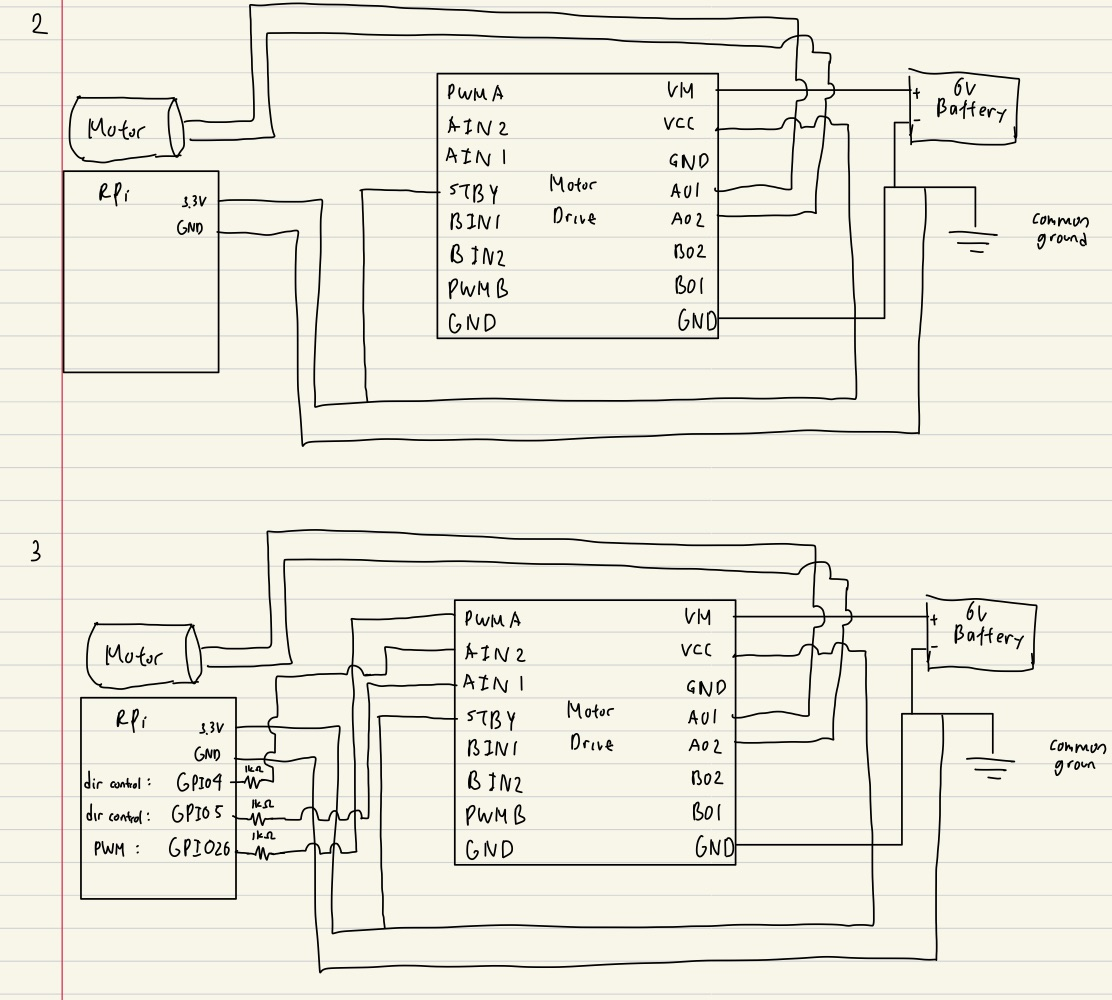 2
Motor
RPi
3.3V
GND
PWMA
AIN2
AIN1
STBY
BIN1
BIN2
PWMB
GND
Motor
Drive
VM
VCC
GND
A01
A02
B02
B01
GND
+
-
6V
Battery
common
ground
3
Motor
RPi
3.3V
GND
dir control : GPIO4
dir control : GPIO5
PWM : GPIO26
1kΩ
1kΩ
1kΩ
PWMA
AIN2
AIN1
STBY
BIN1
BIN2
PWMB
GND
Motor
Drive
VM
VCC
GND
A01
A02
B02
B01
GND
+
-
6V
Battery
common
groun